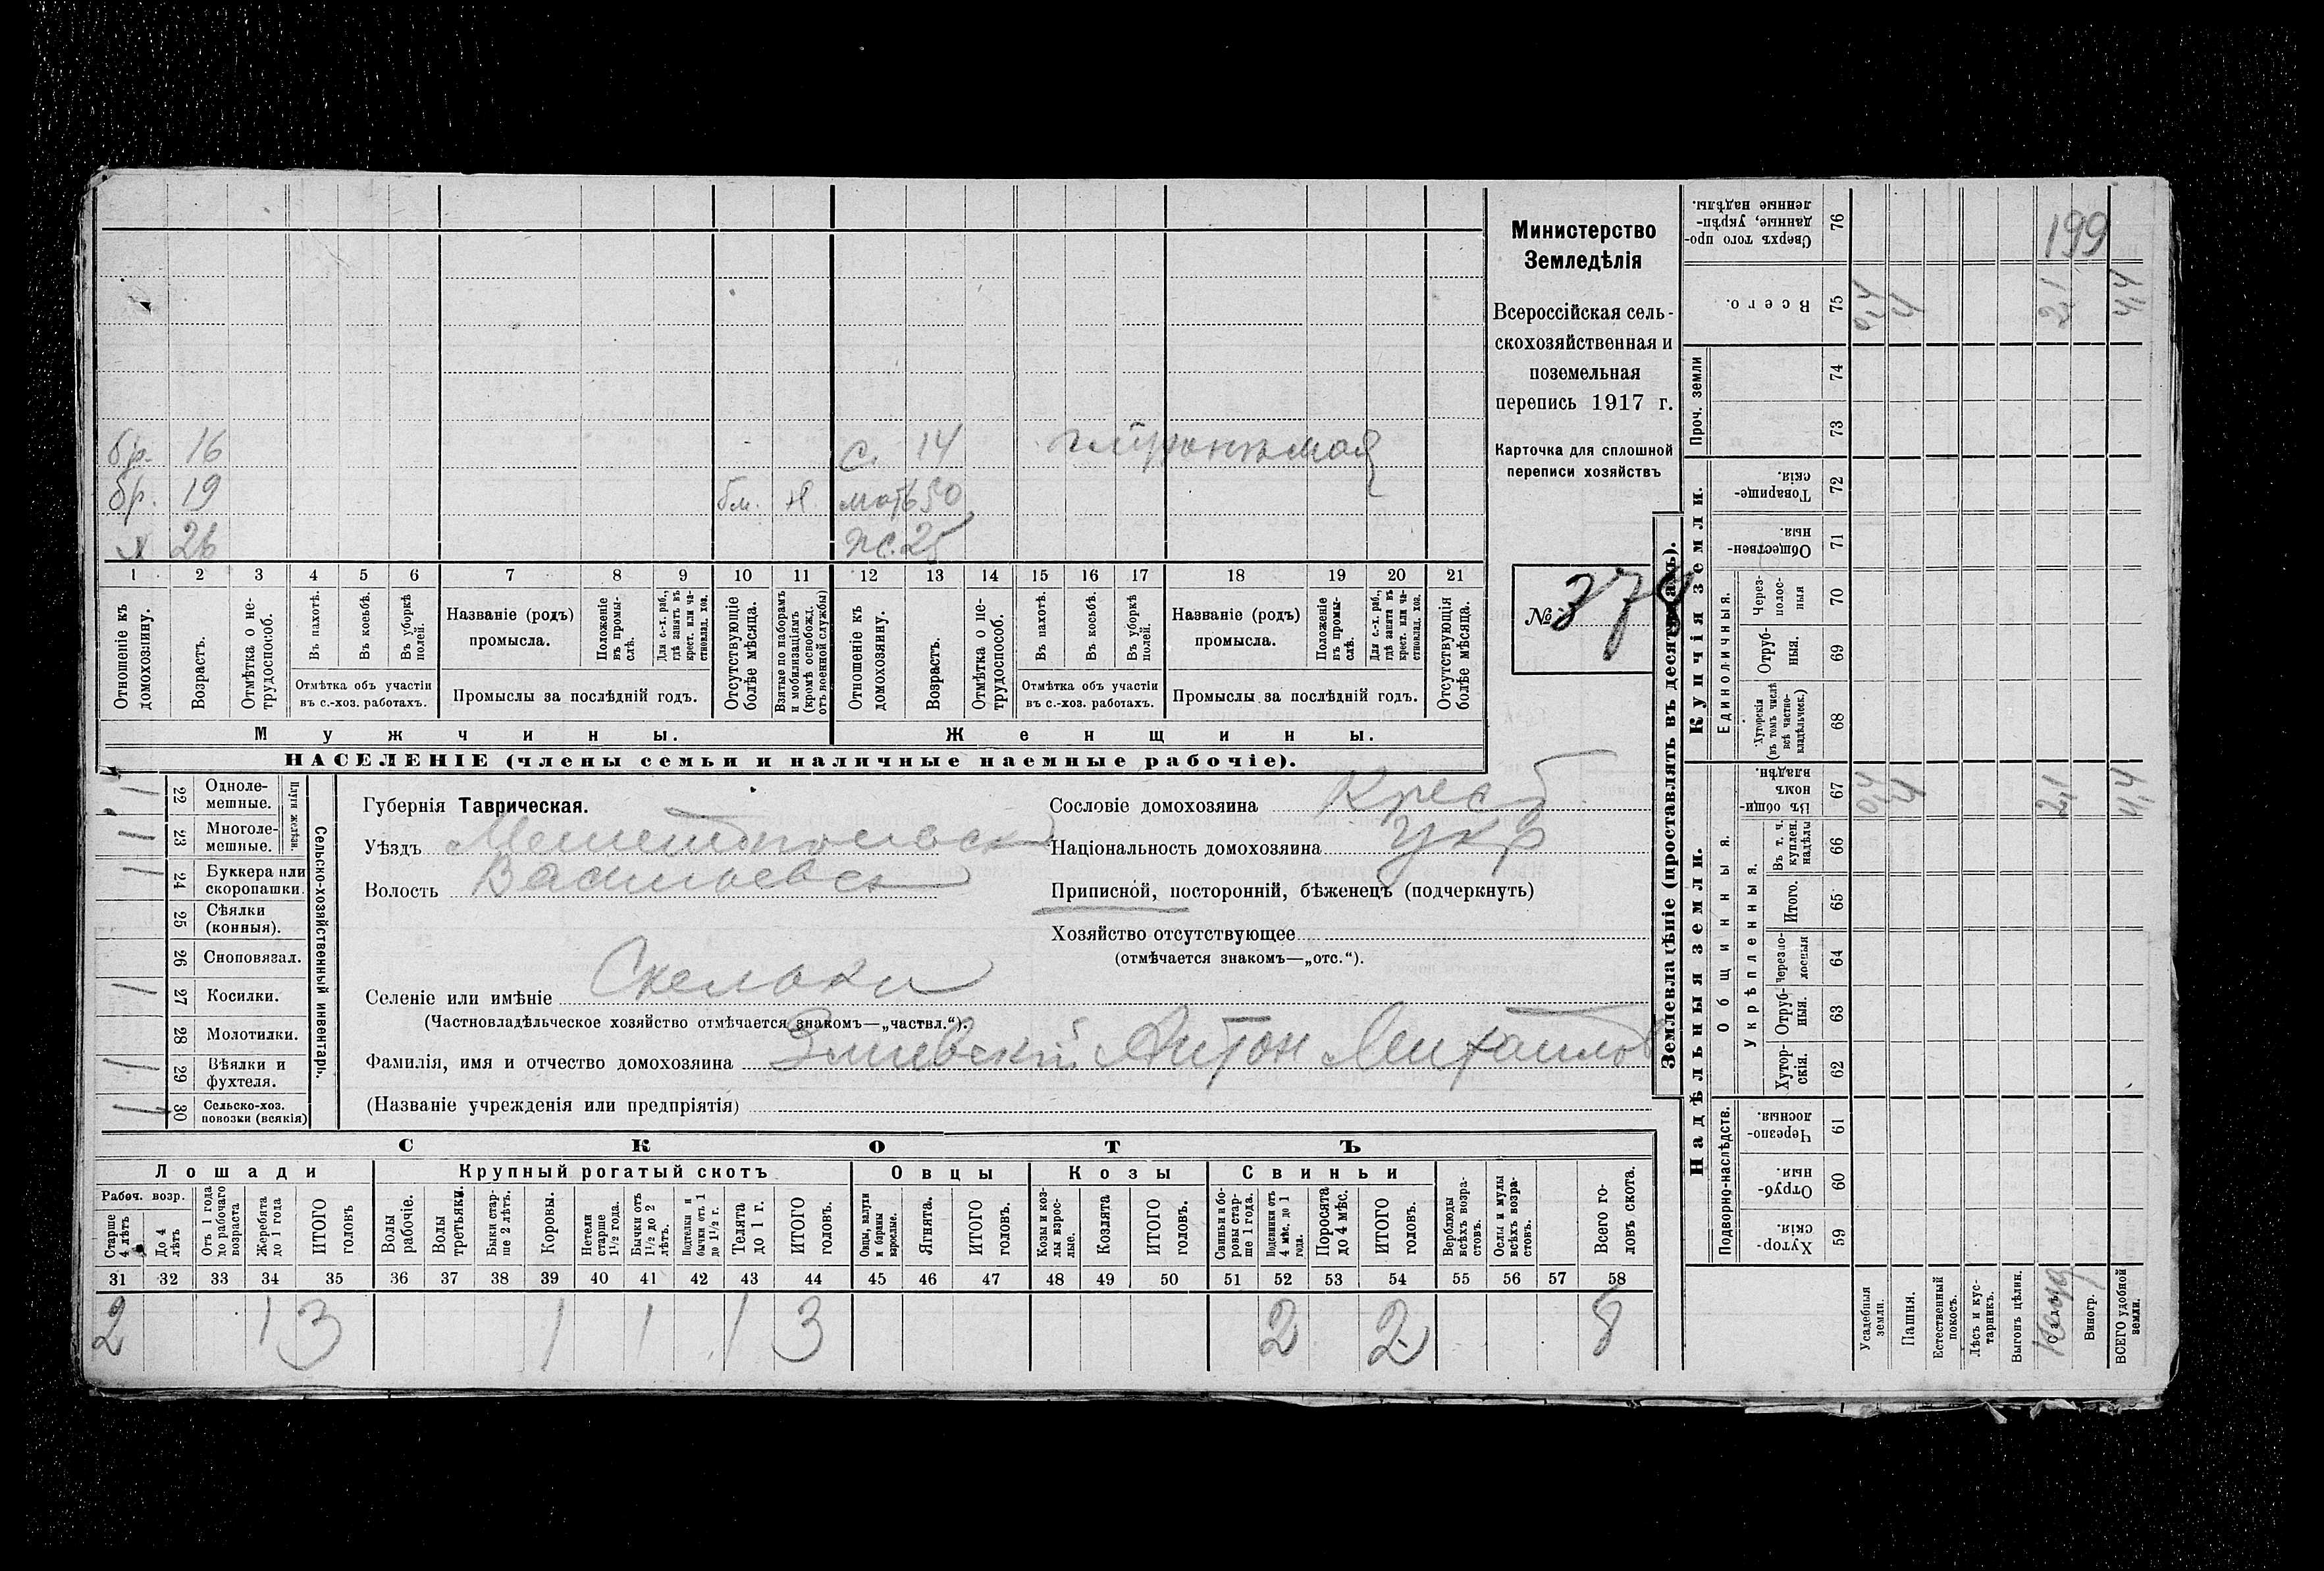 бр. 16 с. 14
бр. 19 бм. мать 50
х 26 ж. 25
1 2 3 4 5 6 7 8 9 10 11 12 13 14 15 16 17 18 19 20 21
Отношеніе къ домохозяину.
Возрастъ.
Отмѣтка о не-
трудоспособ.
Въ пахотѣ.
Въ косьбѣ.
Въ уборкѣ
полей.
Отмѣтка объ участіи
въ с.-хоз. работахъ.
Названіе (родъ)
промысла.
Положеніе
въ промы-
слѣ.
Для с.-х. раб.,
гдѣ занятъ въ
крест. или ча-
стновлад. хоз.
Промыслы за послѣдній годъ.
Отсутствующіе
болѣе мѣсяца.
Взятые по наборамъ
и мобилизаціямъ
(кромѣ освобожд.
отъ военной службы)
Отношеніе къ
домохозяину.
Возрастъ.
Отмѣтка о не-
трудоспособ.
Въ пахотѣ.
Въ косьбѣ.
Въ уборкѣ
полей.
Отмѣтка объ участіи
въ с.-хоз. работахъ.
Названіе (родъ)
промысла.
Положеніе
въ промы-
слѣ.
Для с.-х. раб.,
гдѣ занята въ
крест. или ча-
стновлад. хоз.
Промыслы за послѣдній годъ.
Отсутствующія
болѣе мѣсяца.
Мужчины. Женщины.
НАСЕЛЕНІЕ (члены семьи и наличные наемные рабочіе).
Министерство
Земледѣлія
Всероссійская сель-
скохозяйственная и
поземельная
перепись 1917 г.
Карточка для сплошной
переписи хозяйствъ
№
Сельско-хозяйственный инвентарь.
Плуги желѣзн.
22 Одноле-
мешные.
23 Многоле-
мешные.
24 Буккера или
скоропашки.
25 Сѣялки
(конныя).
26 Сноповязал.
27 Косилки.
28 Молотилки.
29 Вѣялки и
фухтеля.
30 Сельско-хоз.
повозки (всякія)
Губернія Таврическая.
Уѣздъ Мелитопольск
Волость Васильевск
Селеніе или имѣніе Скельки
(Частновладѣльческое хозяйство отмѣчается знакомъ—„частвл.“).
Фамилія, имя и отчество домохозяина Змиевский Антон Михайлов
(Названіе учрежденія или предпріятія)
Сословіе домохозяина Крест.
Національность домохозяина Укр
Приписной, посторонній, бѣженецъ (подчеркнуть)
Хозяйство отсутствующее
(отмѣчается знакомъ—„отс.“).
СКОТЪ
Лошади Крупный рогатый скотъ Овцы Козы Свиньи
Рабоч. возр.
Старше
4 лѣтъ
До 4
лѣтъ
Отъ 1 года
до рабочаго
возраста
Жеребята
до 1 года
ИТОГО
головъ
Волы
рабочіе.
Волы
третьяки.
Быки стар-
ше 2 лѣтъ.
Коровы.
Нетели
старше
1½ года.
Бычки отъ
1½ до 2
лѣтъ.
Подтелки и
бычки отъ 1
до 1½ г.
Телята
до 1 г.
ИТОГО
головъ.
Овцы, валухи
и бараны
взрослые.
Ягнята.
ИТОГО
головъ.
Козы и коз-
лы взрос-
лые.
Козлята
ИТОГО
головъ.
Свиньи и бо-
ровы стар-
ше 1 года.
Подсвинки отъ
4 мѣс. до 1
года.
Поросята
до 4 мѣс.
ИТОГО
головъ.
Верблюды
всѣхъ возра-
стовъ.
Ослы и мулы
всѣхъ возра-
стовъ.
Всего го-
ловъ скота.
31 32 33 34 35 36 37 38 39 40 41 42 43 44 45 46 47 48 49 50 51 52 53 54 55 56 57 58
2 1 3 1 1 1 3 2 2 8
Землевладѣніе (проставлять въ десятинахъ).
Надѣльныя земли. Купчія земли. Проч. земли
Подворно-наслѣдств. Общинныя. Единоличныя.
Укрѣпленныя.
59 Хутор-
скія.
60 Отруб-
ныя.
61 Черезпо-
лосныя
62 Хутор-
скія.
63 Отруб-
ныя.
64 Черезпо-
лосныя
65 Итого.
66 Въ т. ч.
куплен.
надѣлы
67 Въ общи-
номъ
владѣн.
68 Хуторскія
(въ томъ числѣ
всѣ частно-
владѣльческ.)
69 Отруб-
ныя.
70 Через-
полос-
ныя
71 Обществен-
ныя.
72 Товарище-
скія.
73
74
75 Всего.
76 Сверхъ того про-
данные, укрѣп-
ленные надѣлы.
Усадебныя
земли. 0,4 0,4
Пашня. 4 4
Естественный
покосъ.
Лѣсъ и кус-
тарникъ.
Выгонъ цѣлин.
2,1 2,1 199
Виногр.
ВСЕГО удобной
земли. 4,4 4,4